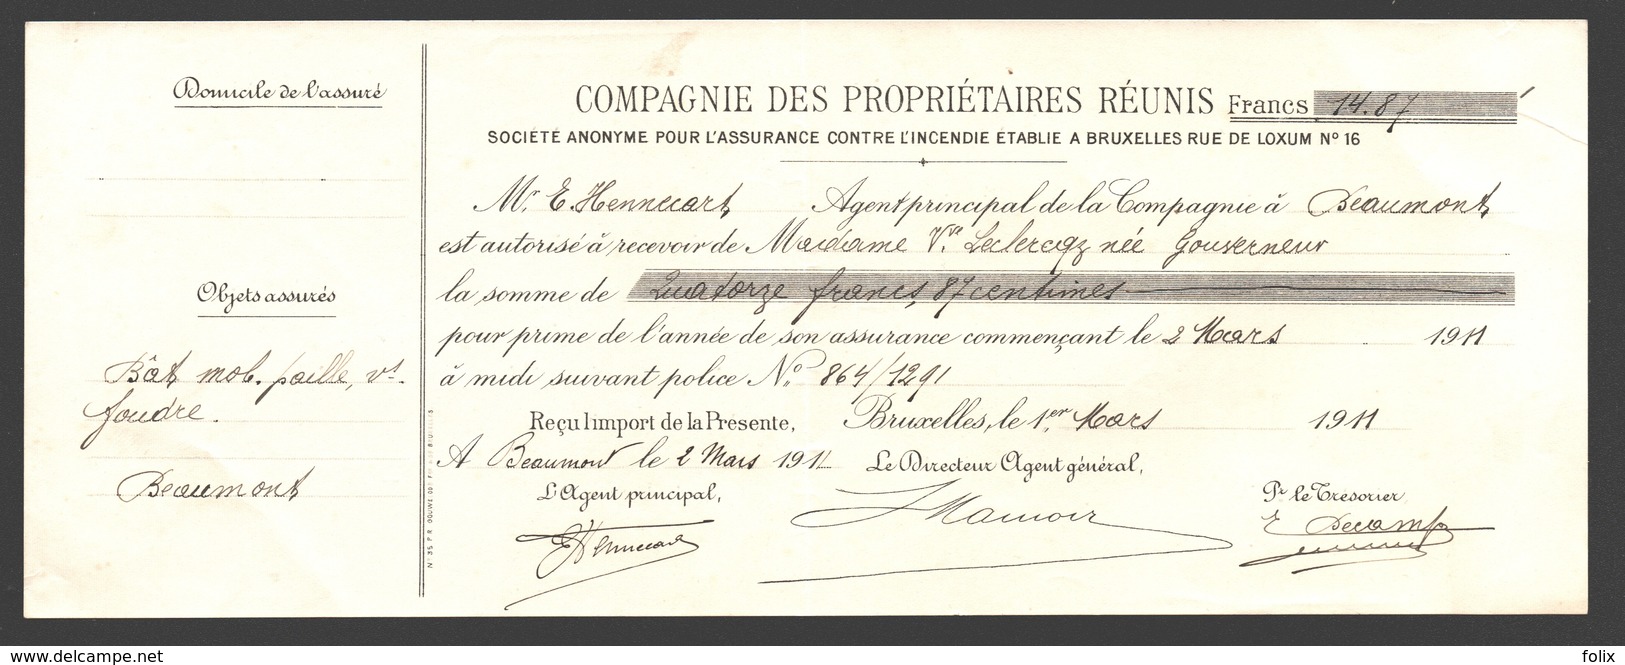 Domicile de l'assuré
Objets assurés
Bât mob. paille, vt.
foudre.
Beaumont
COMPAGNIE DES PROPRIÉTAIRES RÉUNIS Francs 14.87
SOCIÉTÉ ANONYME POUR L'ASSURANCE CONTRE L'INCENDIE ÉTABLIE A BRUXELLES RUE DE LOXUM No 16
Mr. E. Hennecart, Agent principal de la Compagnie à Beaumont,
est autorisé à recevoir de Madame Vve Leclercqz née Gouverneur
la somme de Quatorze francs, 87 centimes
pour prime de l'année de son assurance commençant le 2 Mars 1911
à midi suivant police No. 864/1291
Reçu l'import de la Présente, Bruxelles, le 1er Mars 1911
A Beaumont le 2 Mars 1911 Le Directeur Agent général,
L'Agent principal, Pr le Trésorier
E Hennecart Mamoir E Decamps
delcampe.net
folix